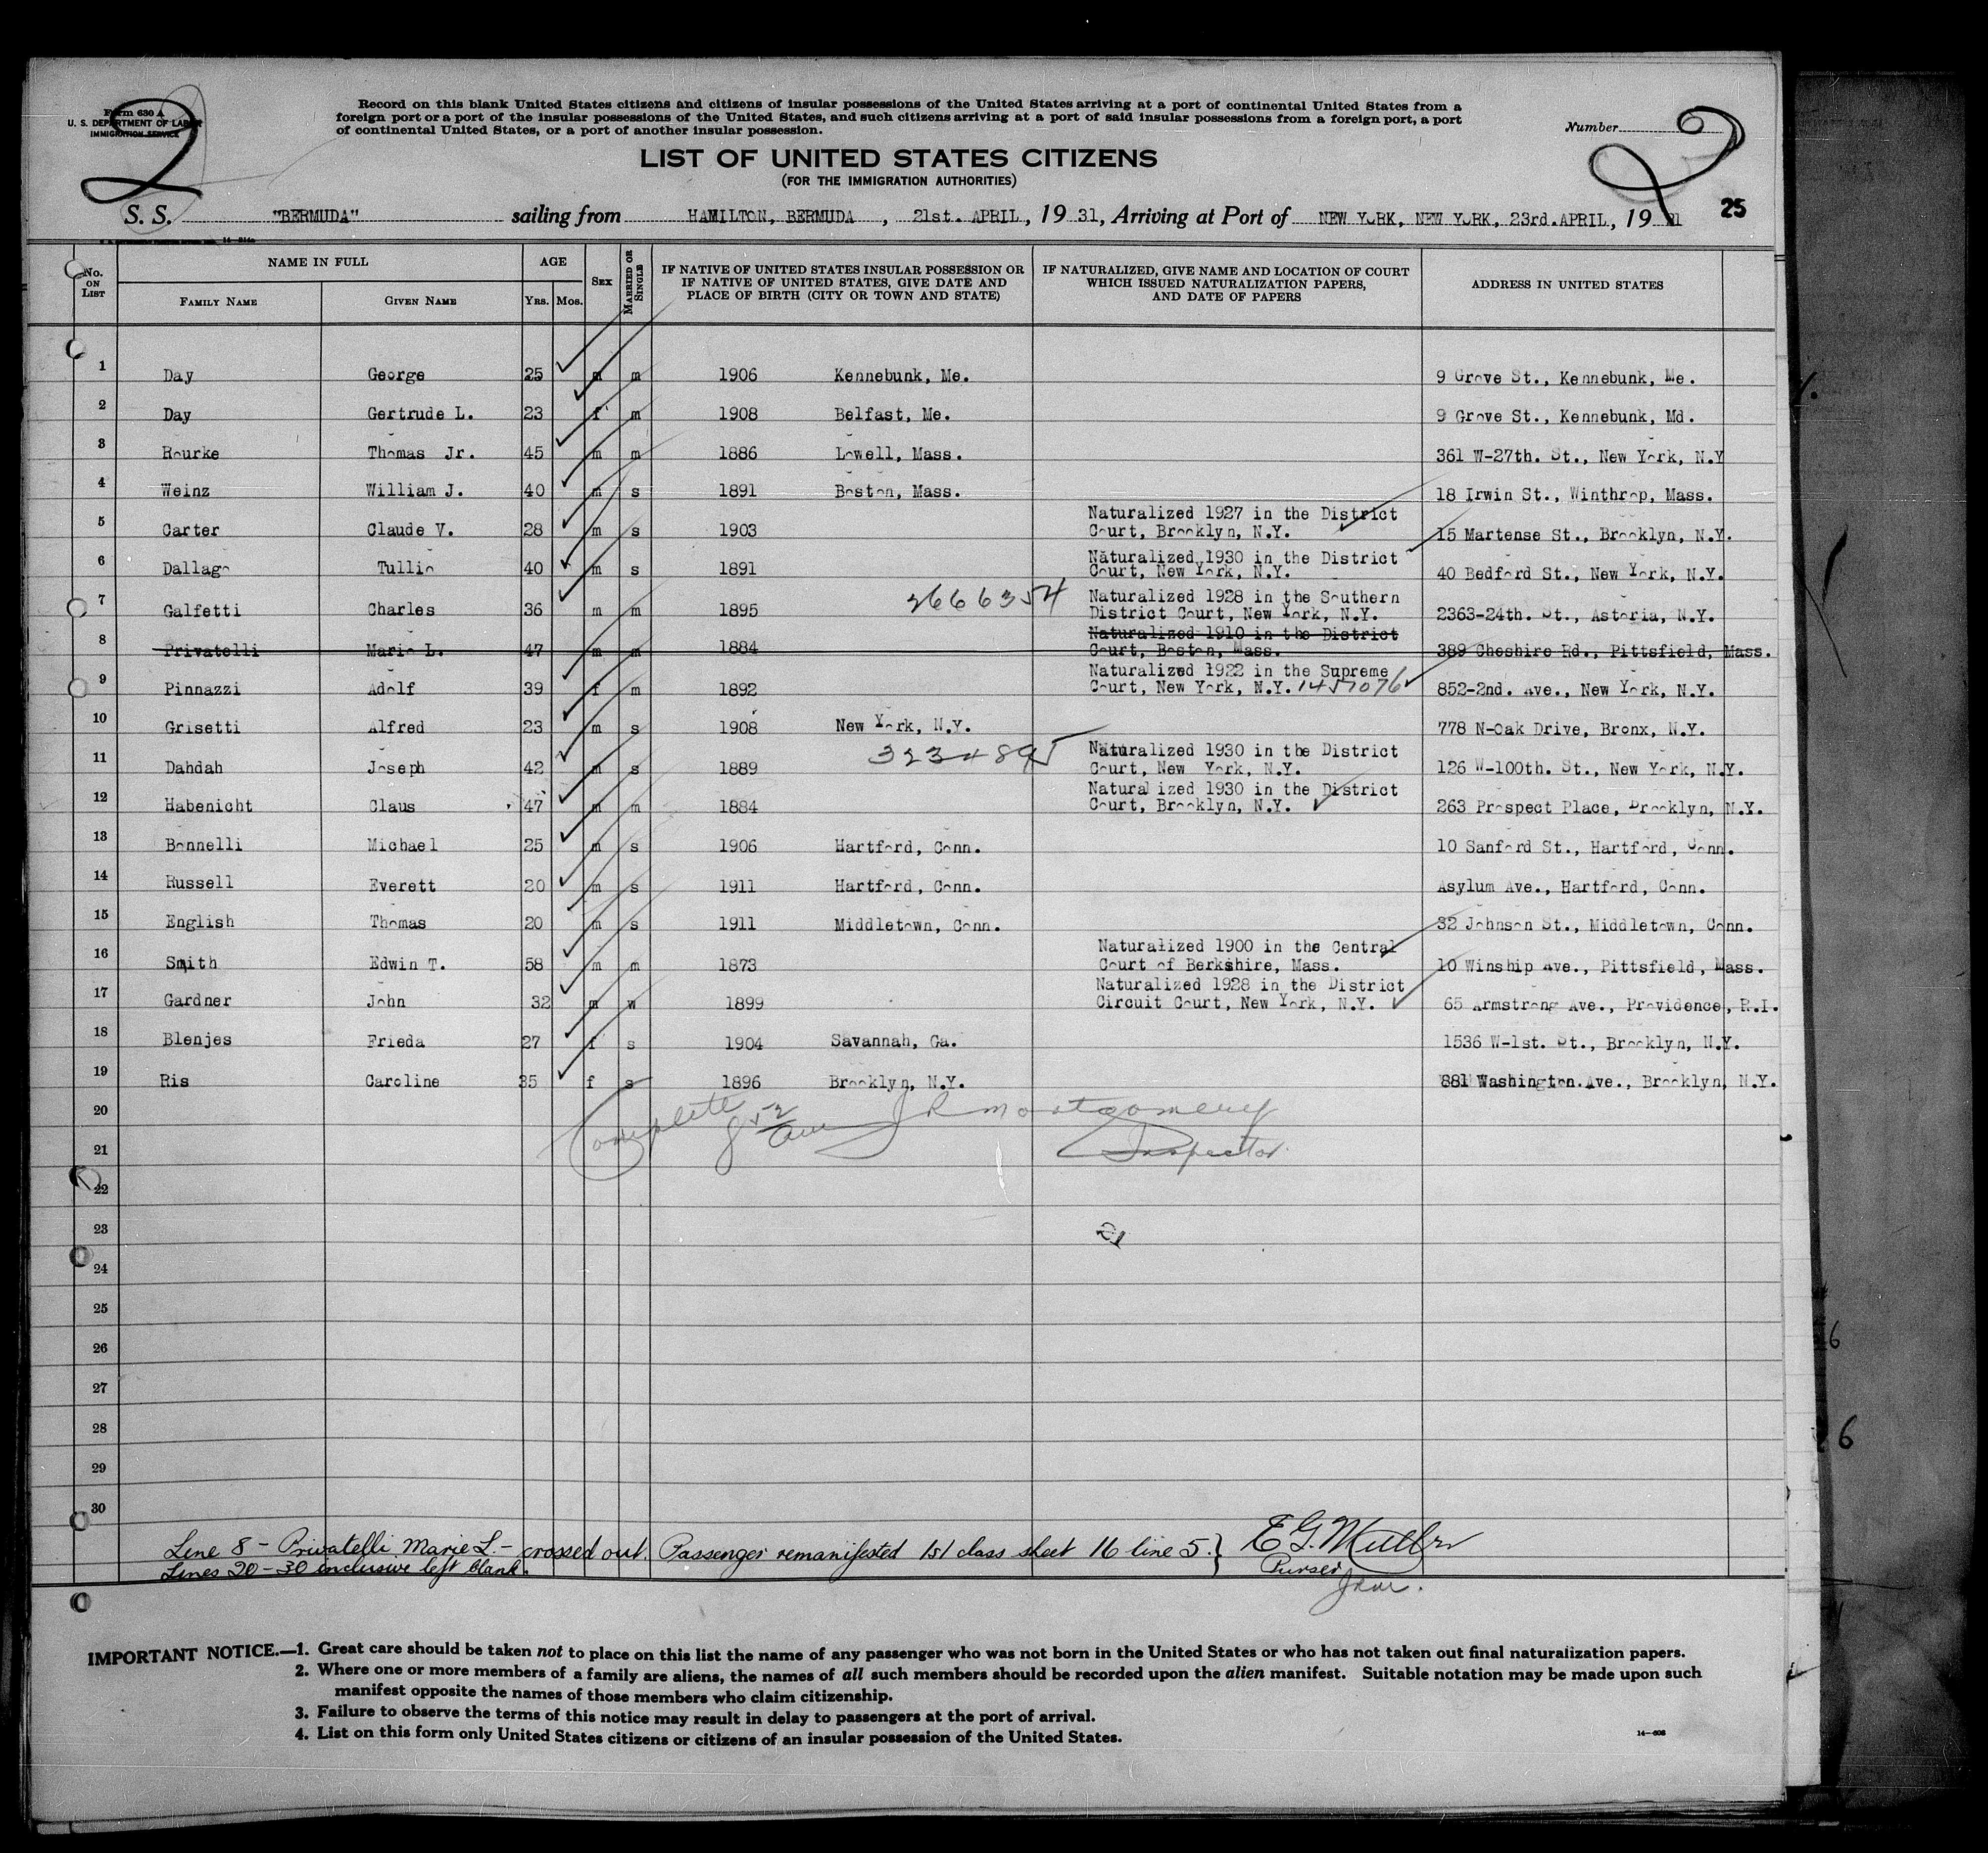 Form 630 A
U. S. DEPARTMENT OF LABOR
IMMIGRATION SERVICE
2
Record on this blank United States citizens and citizens of insular possessions of the United States arriving at a port of continental United States from a
foreign port or a port of the insular possessions of the United States, and such citizens arriving at a port of said insular possessions from a foreign port, a port
of continental United States, or a port of another insular possession.
Number 2
LIST OF UNITED STATES CITIZENS
(FOR THE IMMIGRATION AUTHORITIES)
S. S. "BERMUDA" sailing from HAMILTON, BERMUDA , 21st. APRIL , 19 31, Arriving at Port of NEW YORK, NEW YORK, 23rd.APRIL , 19 31 25
No. ON LIST
NAME IN FULL
FAMILY NAME GIVEN NAME
AGE
YRS. MOS.
SEX
MARRIED OR SINGLE
IF NATIVE OF UNITED STATES INSULAR POSSESSION OR
IF NATIVE OF UNITED STATES, GIVE DATE AND
PLACE OF BIRTH (CITY OR TOWN AND STATE)
IF NATURALIZED, GIVE NAME AND LOCATION OF COURT
WHICH ISSUED NATURALIZATION PAPERS,
AND DATE OF PAPERS
ADDRESS IN UNITED STATES
1 Day George 25 m m 1906 Kennebunk, Me. 9 Grove St., Kennebunk, Me.
2 Day Gertrude L. 23 f m 1908 Belfast, Me. 9 Grove St., Kennebunk, Md.
3 Rourke Thomas Jr. 45 m m 1886 Lowell, Mass. 361 W-27th. St., New York, N.Y
4 Weinz William J. 40 m s 1891 Boston, Mass. 18 Irwin St., Winthrop, Mass.
Naturalized 1927 in the District
5 Carter Claude V. 28 m s 1903 Court, Brooklyn, N.Y. 15 Martense St., Brooklyn, N.Y.
Naturalized 1930 in the District
6 Dallago Tullio 40 m s 1891 Court, New York, N.Y. 40 Bedford St., New York, N.Y.
2666354 Naturalized 1928 in the Southern
7 Galfetti Charles 36 m m 1895 District Court, New York, N.Y. 2363-24th. St., Astoria, N.Y.
Naturalized 1910 in the District
8 Privatelli Marie L. 47 m m 1884 Court, Boston, Mass. 389 Cheshire Rd., Pittsfield, Mass.
Naturalized 1922 in the Supreme
9 Pinnazzi Adolf 39 f m 1892 Court, New York, N.Y. 1457076 852-2nd. Ave., New York, N.Y.
10 Grisetti Alfred 23 m s 1908 New York, N.Y. 778 N-Oak Drive, Bronx, N.Y.
3234895 Naturalized 1930 in the District
11 Dahdah Joseph 42 m s 1889 Court, New York, N.Y. 126 W-100th. St., New York, N.Y.
Natural ized 1930 in the District
12 Habenicht Claus 47 m m 1884 Court, Brooklyn, N.Y. 263 Prospect Place, Brooklyn, N.Y.
13 Bonnelli Michael 25 m s 1906 Hartford, Conn. 10 Sanford St., Hartford, Conn.
14 Russell Everett 20 m s 1911 Hartford, Conn. Asylum Ave., Hartford, Conn.
15 English Thomas 20 m s 1911 Middletown, Conn. 32 Johnson St., Middletown, Conn.
Naturalized 1900 in the Central
16 Smith Edwin T. 58 m m 1873 Court of Berkshire, Mass. 10 Winship Ave., Pittsfield, Mass.
Naturalized 1928 in the District
17 Gardner John 32 m w 1899 Circuit Court, New York, N.Y. 65 Armstrong Ave., Providence, R.I.
18 Blenjes Frieda 27 f s 1904 Savannah, Ga. 1536 W-1st. St., Brooklyn, N.Y.
19 Ris Caroline 35 f s 1896 Brooklyn, N.Y. 881 Washington.Ave., Brooklyn, N.Y.
20 Complete 8 52 am J R Montgomery
21 Inspector
22
23
24
25
26
27
28
29
30
Line 8 - Privatelli Marie L. - crossed out. Passenger remanifested 1st class sheet 16 line 5. } E G. Muller
Lines 20 - 30 inclusive left blank. Purser
JRM.
IMPORTANT NOTICE.—1. Great care should be taken not to place on this list the name of any passenger who was not born in the United States or who has not taken out final naturalization papers.
2. Where one or more members of a family are aliens, the names of all such members should be recorded upon the alien manifest. Suitable notation may be made upon such
manifest opposite the names of those members who claim citizenship.
3. Failure to observe the terms of this notice may result in delay to passengers at the port of arrival.
4. List on this form only United States citizens or citizens of an insular possession of the United States.
14—608